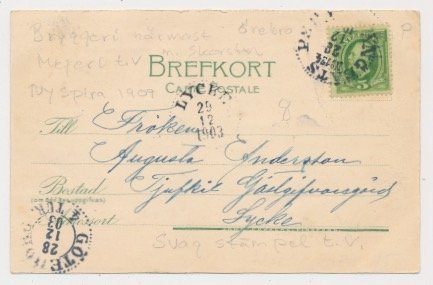 Bryggeri närmast Örebro
m. Skorsten
Mejeri t.v
Ny Spira 1909
BREFKORT
CARTE POSTALE
LYCKE
29
12
1903
Till Fröken
Augusta Andersson
Bostad
Gästgifvaregård
Lycke
28
12
03
GÖTEBORG
TUR
Svag stämpel t.v.